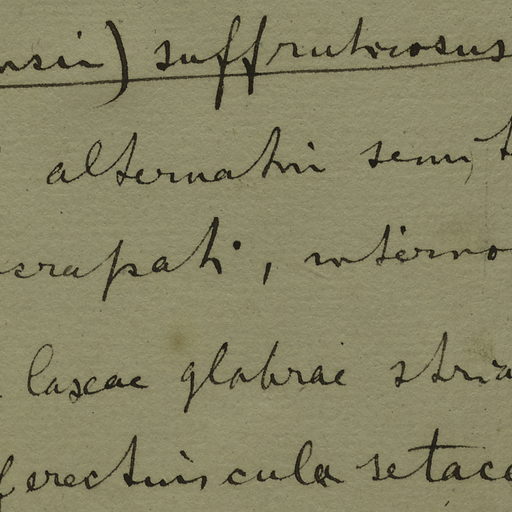 ensii) suffruticosus
alternatim semi t
scrapati, interno
laxae glabrae stria
f erectiuscula setace